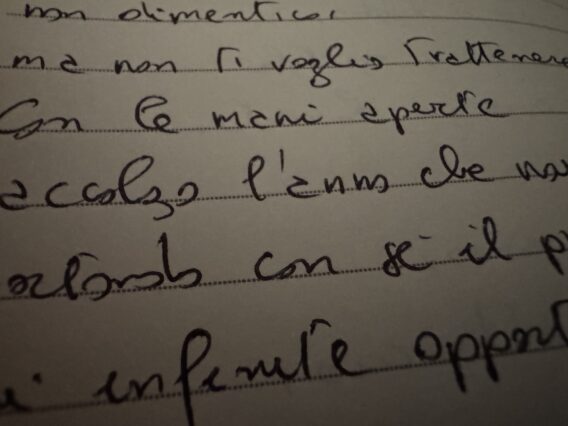 non dimentico,
ma non ti voglio trattenere
Con le mani aperte
accolgo l'anno che na
con sé il p
infinite opport